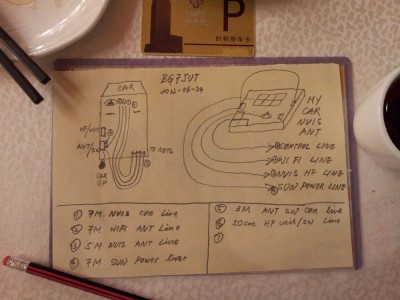 P
时租停车卡
CAR
BG7JUT
2012-08-24
HF/UNIT
ANT/SW
CAR
GP
TO NVIS
MY
CAR
NVIS
ANT
① CONTROL LINE
② WI FI LINE
③ NVIS HF LINE
④ SUN POWER LINE
① 7M NVIS CON Line
② 7M WIFI ANT Line
③ 5M NVIS ANT Line
④ 7M SUN POWER Line
⑤ 3M ANT SW CON Line
⑥ 50cm HF unit/SW Line
⑦